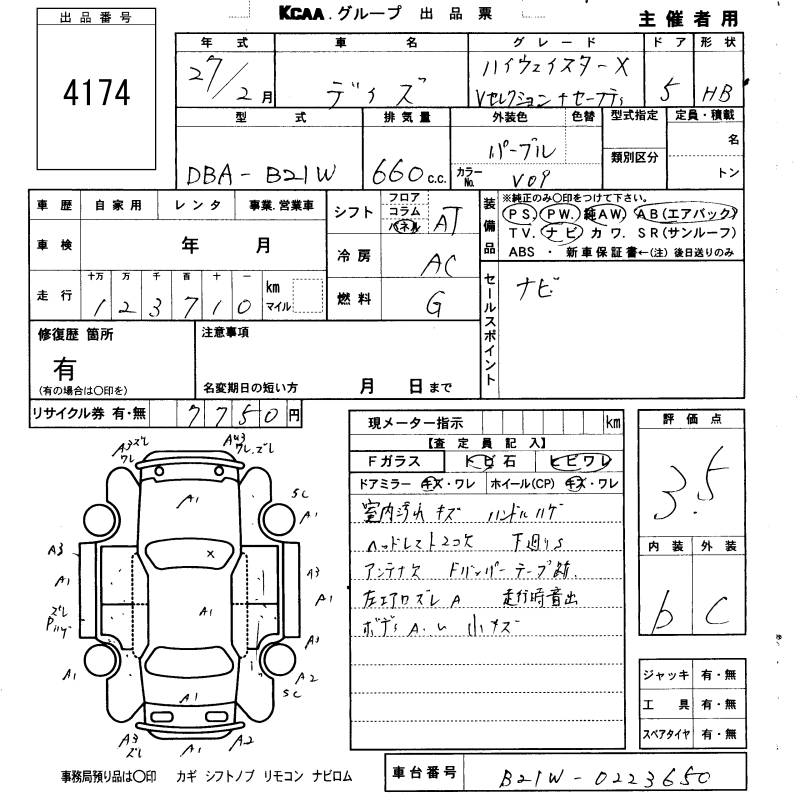 出品番号
4174
KCAA.グループ 出品票
主催者用
年式 車名 グレード ドア 形状
27/2月 デイズ ハイウェイスターX Vセレクション+セーフティ 5 HB
型式 排気量 外装色 色替 型式指定 定員・積載
DBA-B21W 660c.c. パープル 類別区分 名
カラーNo. V09 トン
車歴 自家用 レンタ 事業.営業車
車検 年 月
走行 十万 万 千 百 十 一 km マイル
1 2 3 7 1 0
シフト フロア コラム パネル AT
冷房 AC
燃料 G
装備品 ※純正のみ〇印をつけて下さい。
PS. PW. 純AW. AB(エアバック)
TV. ナビ カワ. SR(サンルーフ)
ABS ・ 新車保証書←(注)後日送りのみ
セールスポイント ナビ
修復歴 箇所
有
(有の場合は〇印を)
注意事項
名変期日の短い方 月 日まで
リサイクル券 有・無 7750円
現メーター指示 km
【査定員記入】
Fガラス トビ石 ヒビワレ
ドアミラー キズ・ワレ ホイール(CP) キズ・ワレ
室内汚れ キズ ハンドルハゲ
ヘッドレスト2コ欠 下廻りS
アンテナ欠 Fバンパー テープ跡.
左エアロズレA 走行時音出
ボディA.U 小キズ
評価点
3.5
内装 外装
b C
ジャッキ 有・無
工具 有・無
スペアタイヤ 有・無
A3ズレ ワレ
A43 ワレ.ズレ
A1
SC
A1
A3
A1
A3
A1
A1
ズレ
Pハゲ
A1
A1
A2
SC
A1
A3 ズレ
A1
A2
事務局預り品は〇印 カギ シフトノブ リモコン ナビロム
車台番号 B21W-0223650